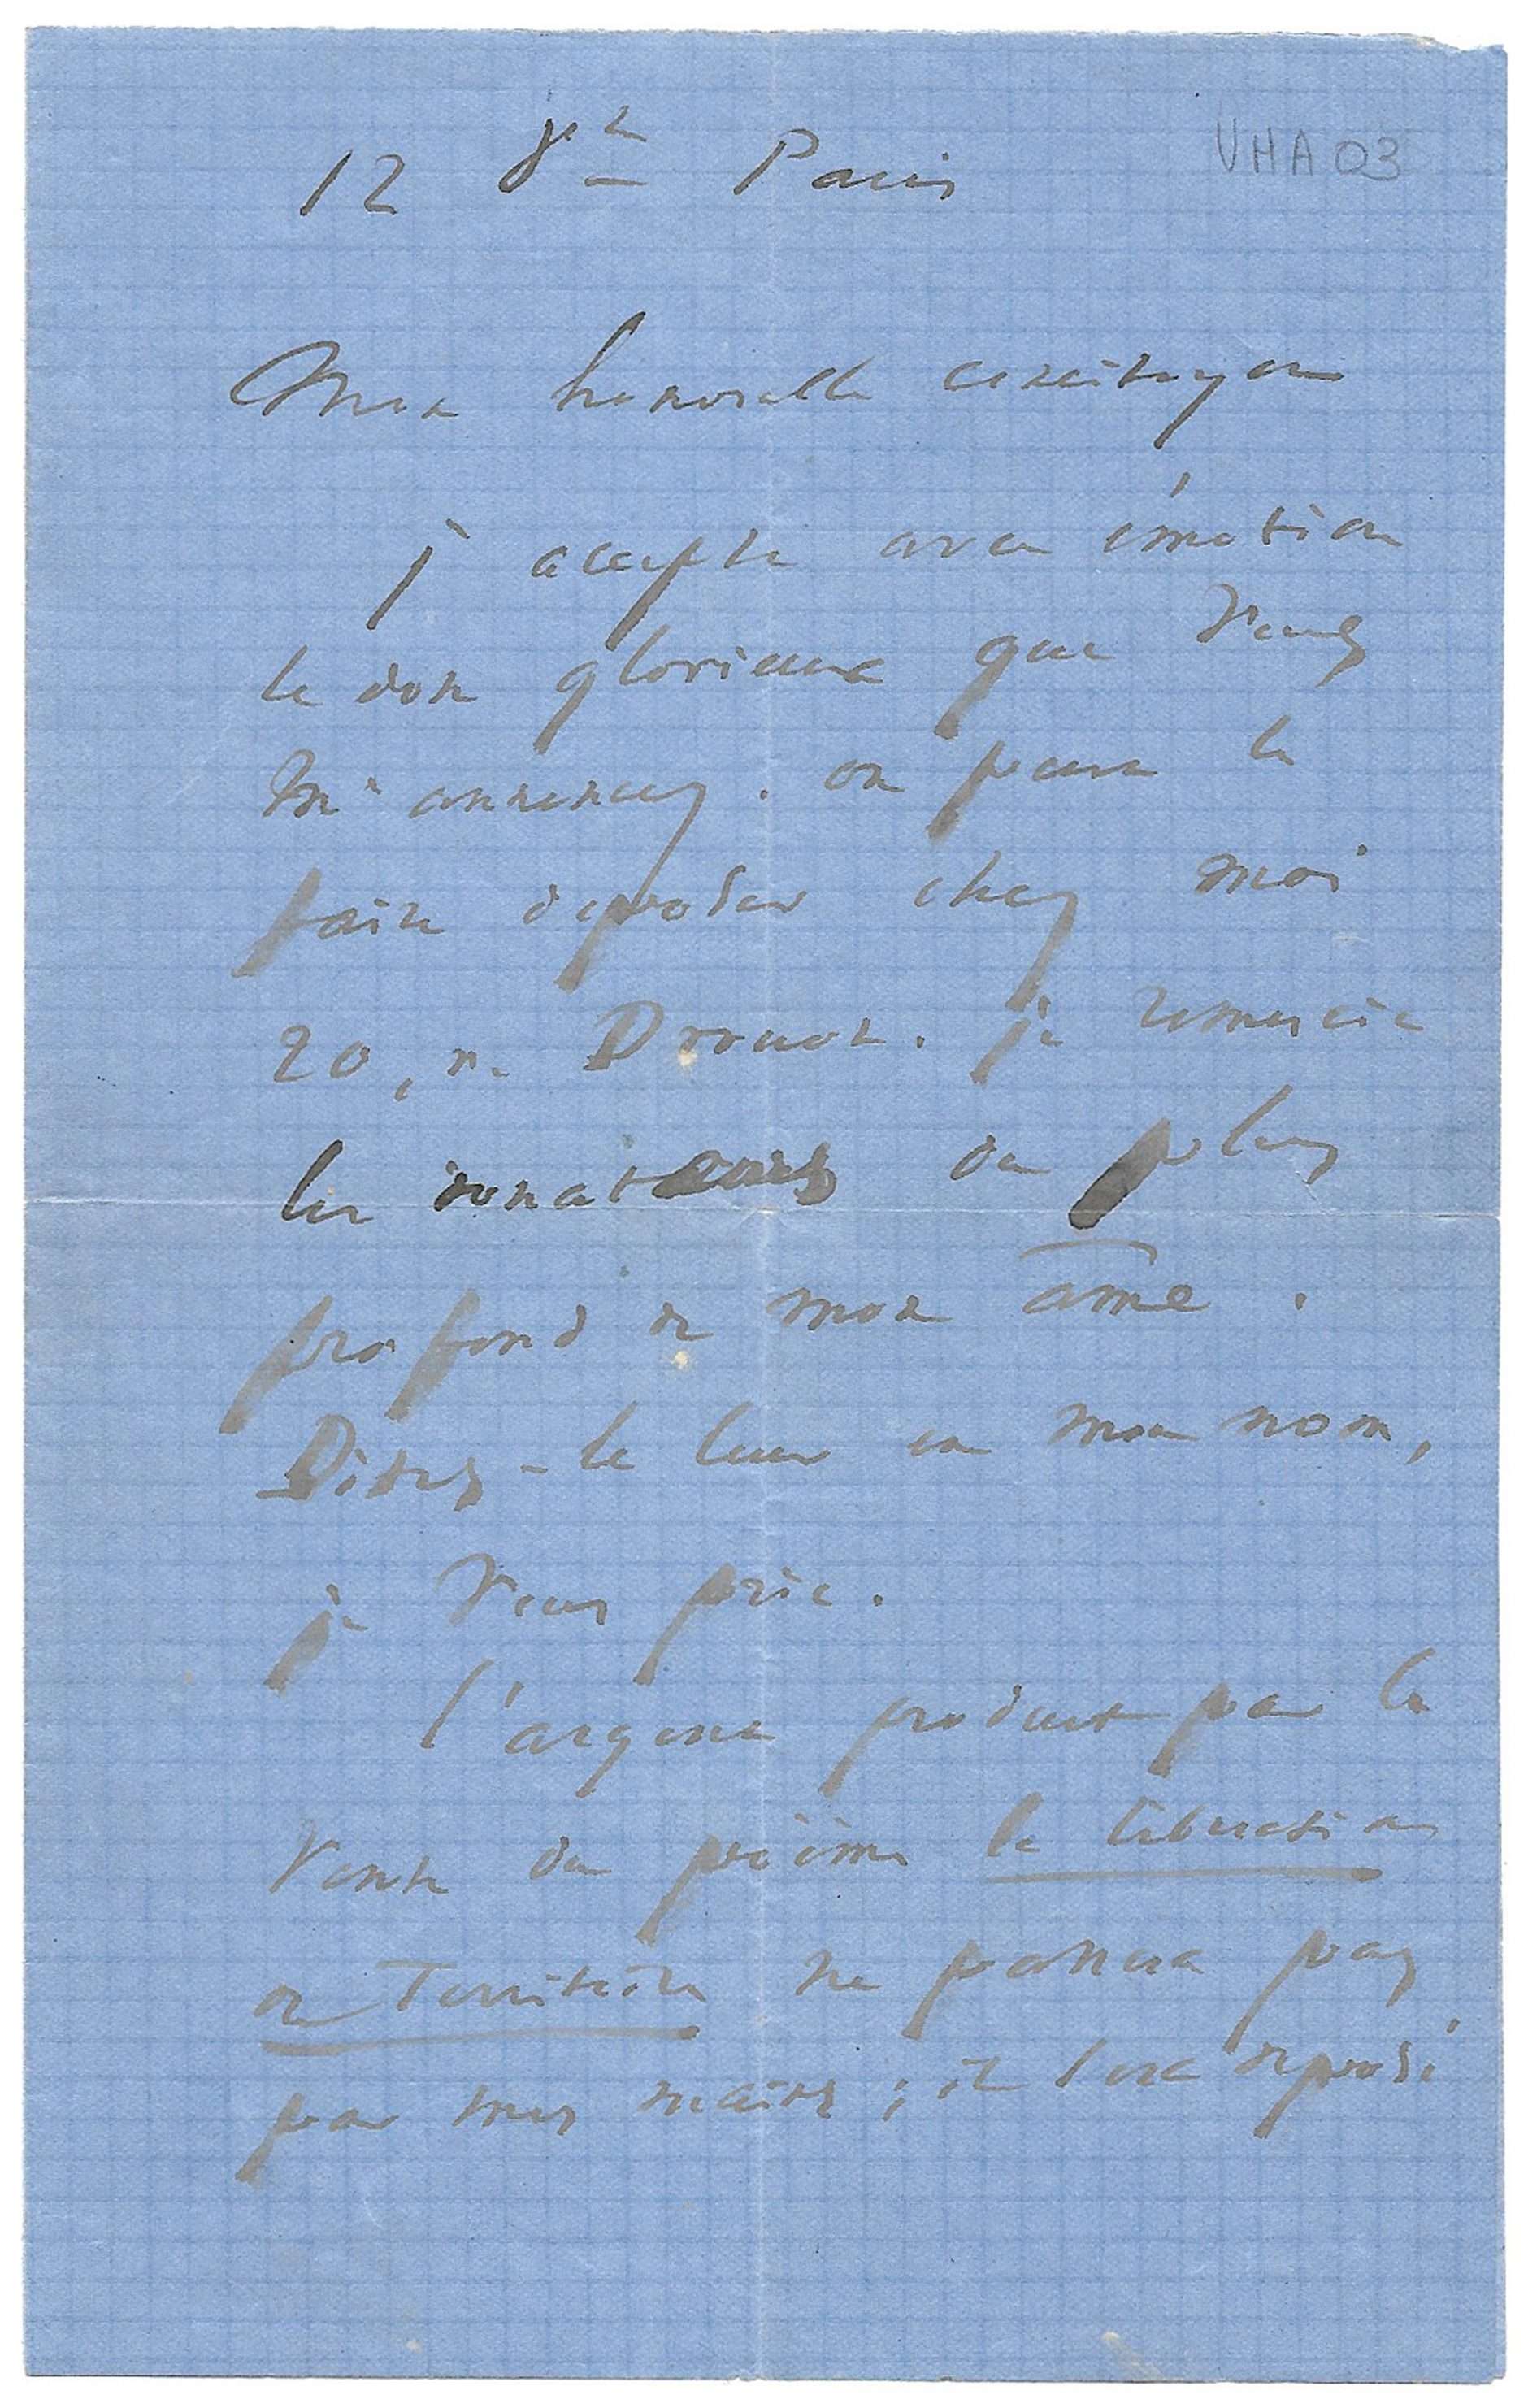 12 8bre Paris
VHA03
Mon honorable concitoyen
J'accepte avec émotion
le don glorieux que vous
m'annoncez. on peut le
faire déposer chez moi
20, r. Drouot. je remercie
les donateurs du plus
profond de mon âme.
Dites-le leur en mon nom,
je vous prie.
l'argent produit par la
vente du poëme la libération
du Territoire ne passera pas
par mes mains ; il sera déposé